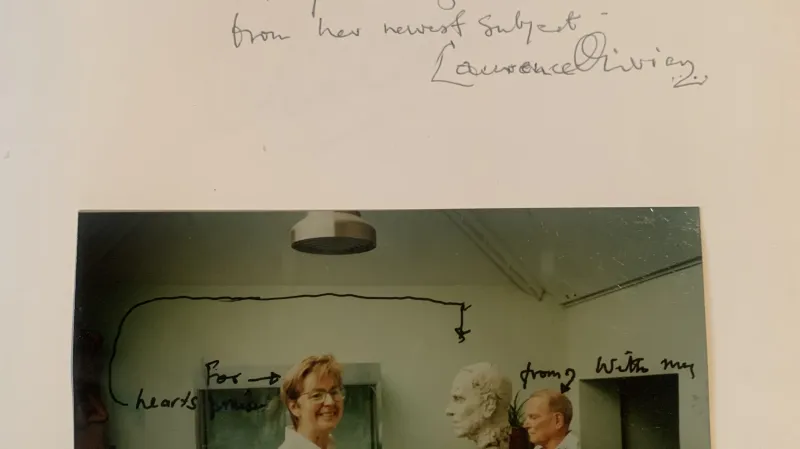 from her newest subject -
Laurence Olivier
For
from
With my
hearts